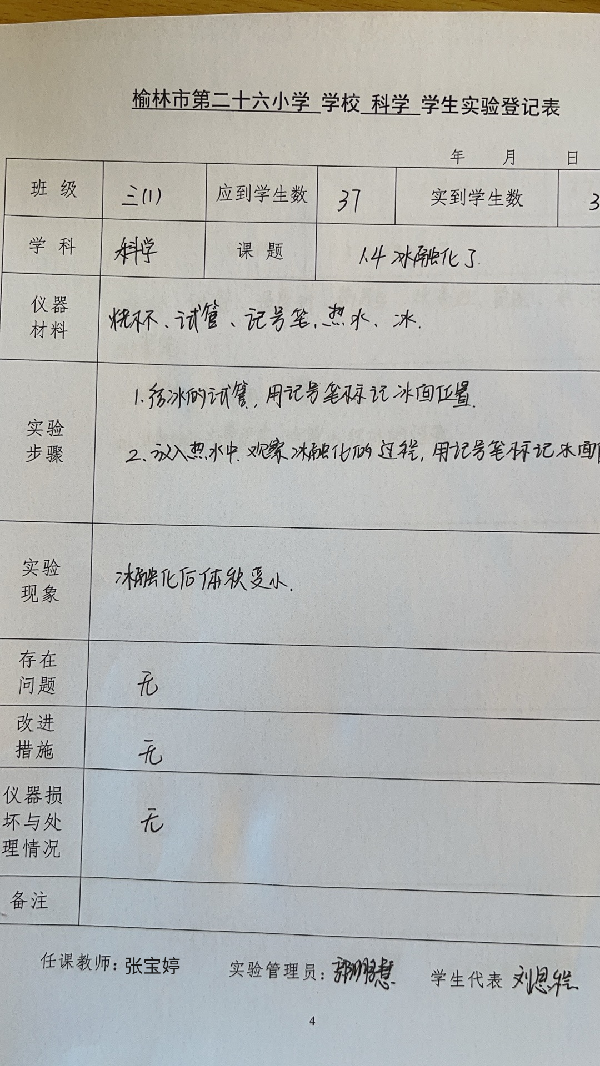 榆林市第二十六小学 学校 科学 学生实验登记表
年 月 日
班 级 三(1) 应到学生数 37 实到学生数 3
学 科 科学 课 题 1.4 冰融化了
仪器材料 烧杯、试管、记号笔、热水、冰.
实验步骤 1. 冰的试管, 用记号笔标记冰面位置.
2. 放入热水中. 观察冰融化的过程, 用记号笔标记水面
实验现象 冰融化后体积变小.
存在问题 无
改进措施 无
仪器损坏与处理情况 无
备注
任课教师: 张宝婷 实验管理员: 学生代表 刘恩
4